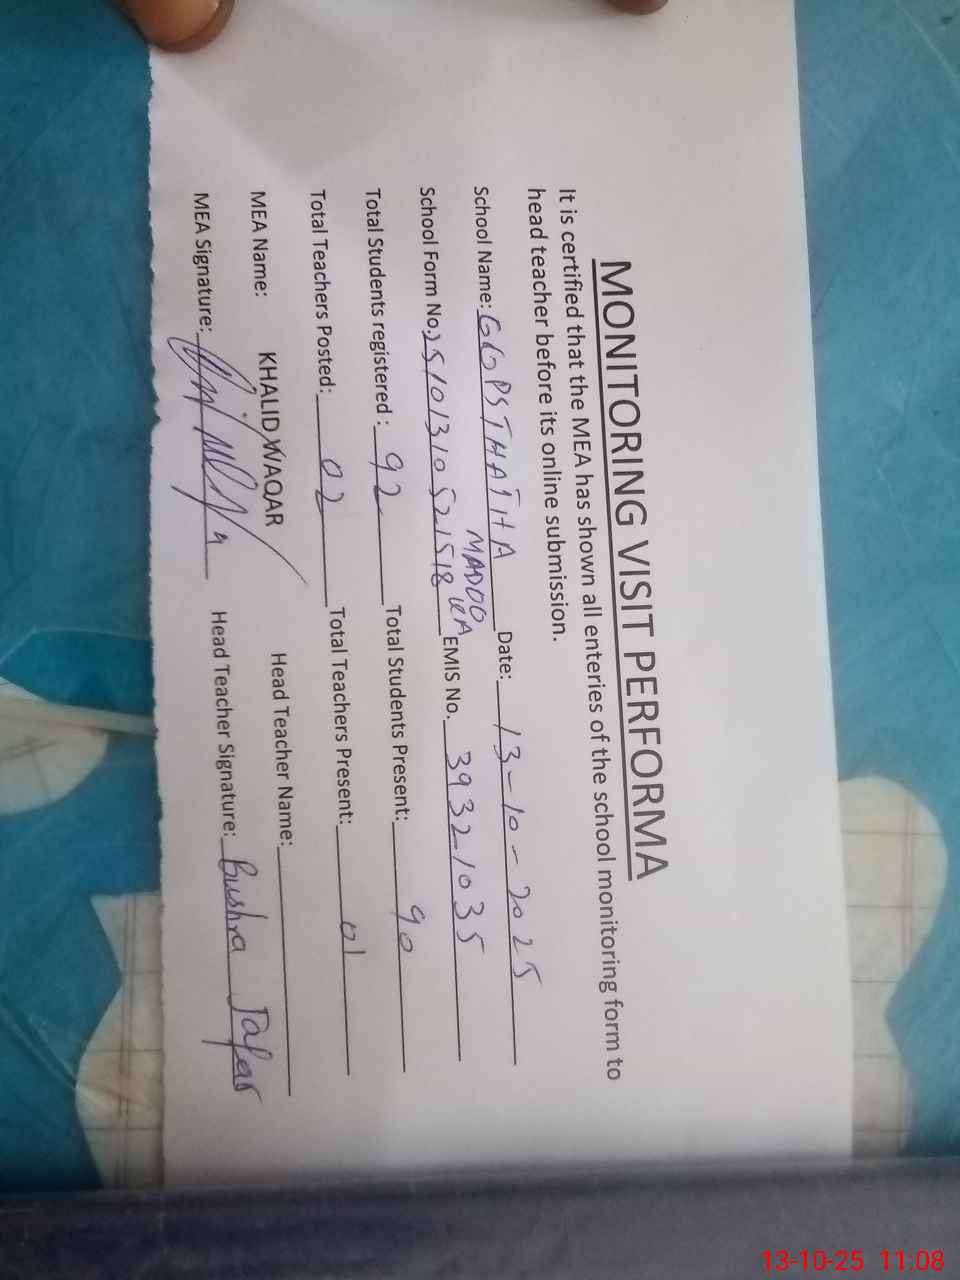 MONITORING VISIT PERFORMA
It is certified that the MEA has shown all enteries of the school monitoring form to
head teacher before its online submission.
School Name: GGPS THATHA Date: 13-10-2025
MADOO
School Form No. 25101310521518 EMIS No. 39321035
Total Students registered : 92 Total Students Present: 90
Total Teachers Posted: 02 Total Teachers Present: 01
MEA Name: KHALID WAQAR Head Teacher Name:
MEA Signature: Head Teacher Signature: Bushra Jafar
13-10-25 11:08